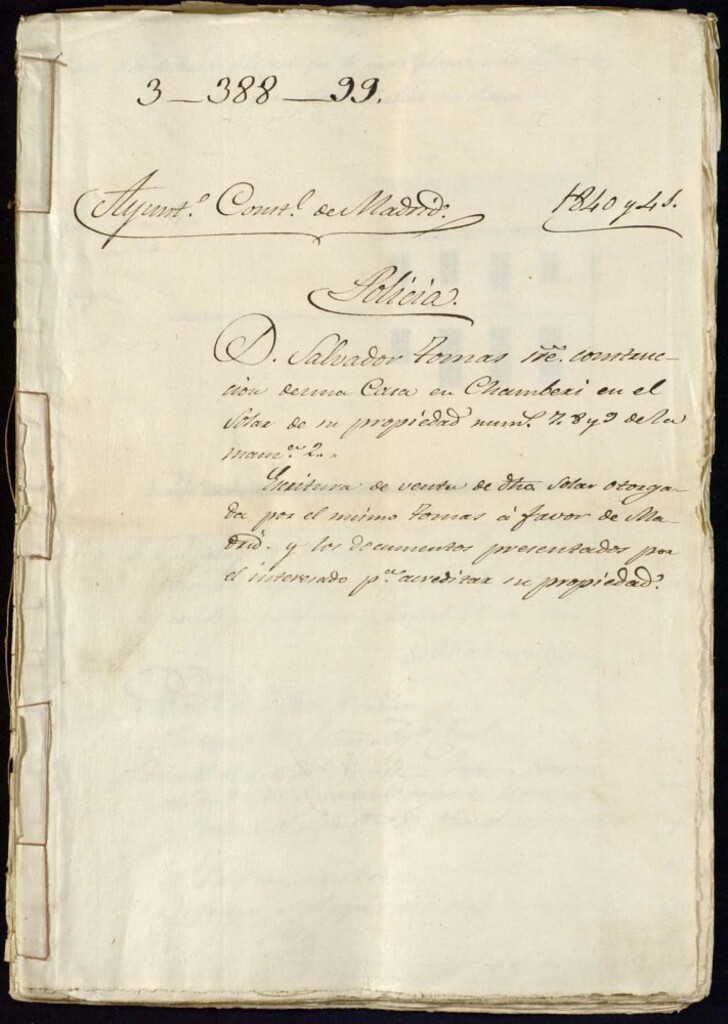 3_388_99.
Ayunt.º Const.l de Madrid. 1840 y 41.
Policia.
D. Salvador Tomas sre. construc-
cion de una Casa en Chamberi en el
Solar de su propiedad num.s 7. 8 y 9 de la
manz.na 2.
Escritura de venta de dho Solar otorga-
da por el mismo Tomas á favor de Ma-
drid. y los documentos presentados por
el interesado p.a acreditar su propiedad.